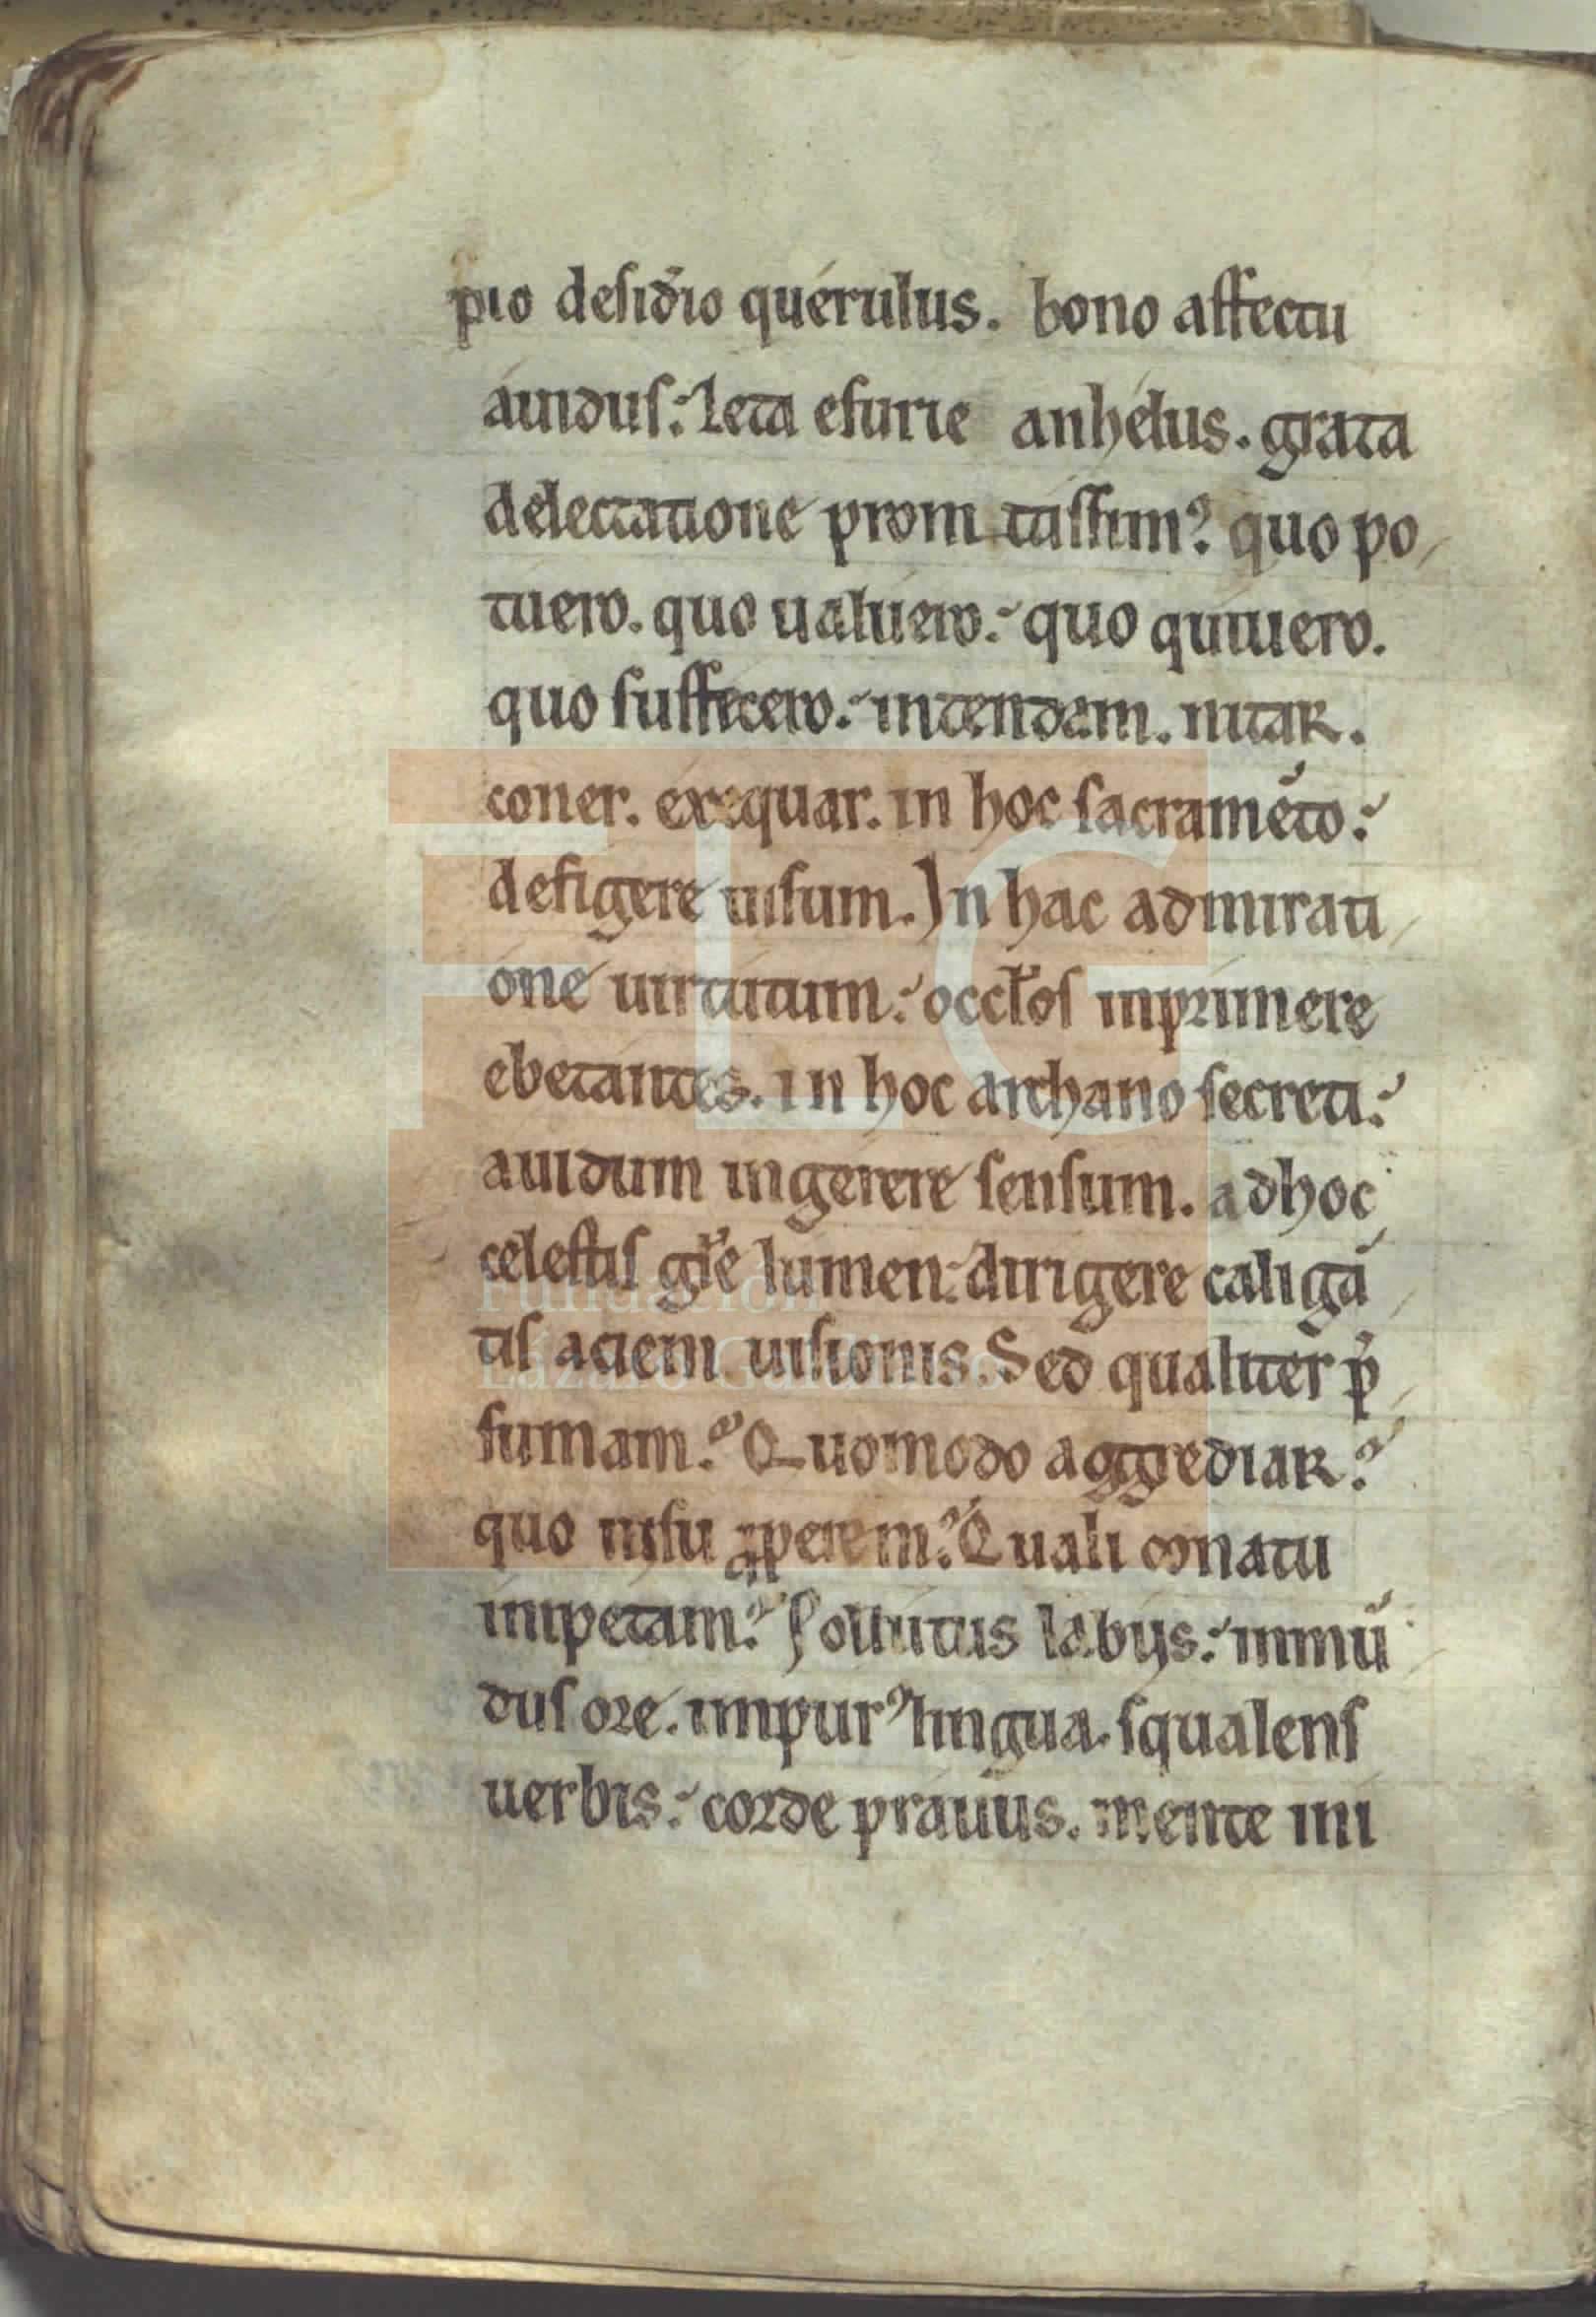 pio desid̄io querulus. bono affectu
auidus: leta esurie anhelus. grata
delectatione promtissimꝰ. quo po
tuero. quo ualuero: quo quiuero.
quo suffecero: intendam. nitar.
coner. exequar. in hoc sacram̄eto:
defigere uisum. In hac admirati
one uirtutum: occl̄os inprimere
ebetantes. in hoc archano secreti:
auidum ingerere sensum. adhoc
celestis gl̄e lumen: dirigere caligā
tis aciem uisionis. Sed qualiter p̄
sumam? Quomodo aggrediar?
quo nisu aperiem? Quali conatu
impetam? Pollutus labijs: inmū
dus ore. impurꝰ lingua. squalens
uerbis: corde prauus. mente ini
FLG
Fundación
Lázaro Galdiano